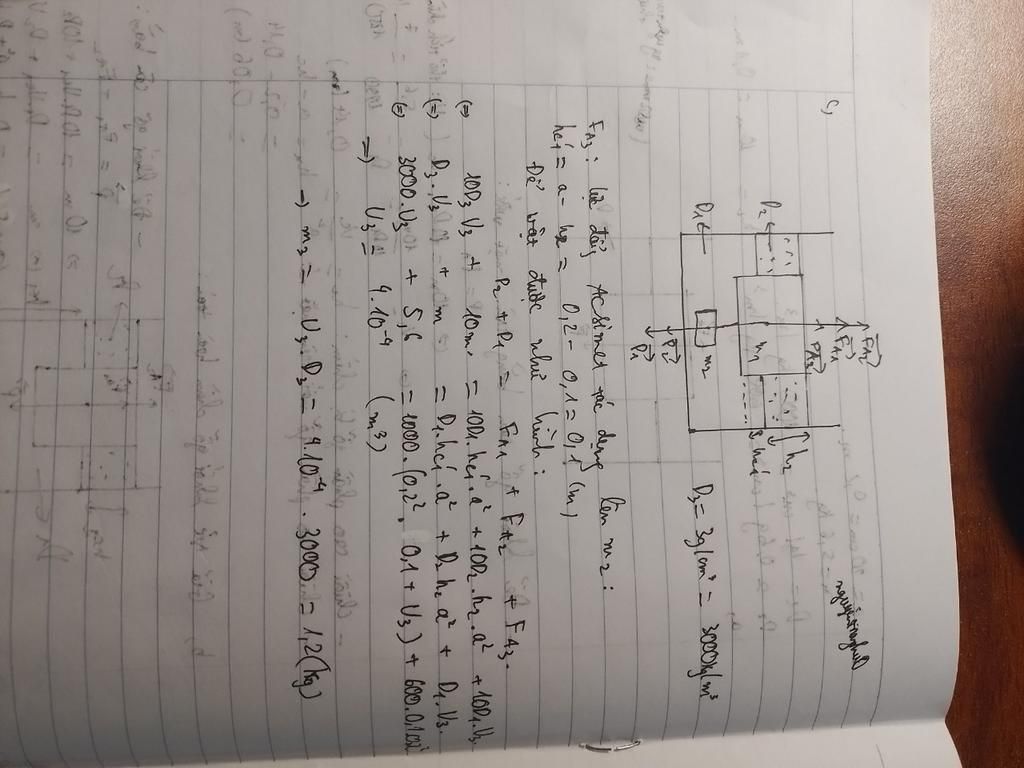 c,
F_A2
F_A1
F_A3
D2
m1
h2
hc1
D1
m2
P2
P1
D3 = 3g/cm³ = 3000kg/m³
F_A3: là đẩy Acsimet tác dụng lên m2:
hc1 = a - h2 = 0,2 - 0,1 = 0,1 (m)
Để vật được như hình:
P2 + P1 = F_A1 + F_A2 + F_A3.
(=) 10D3.V3 + 10m. = 10D1.hc1.a² + 10D2.h2.a² + 10D1.V3
(=) D3.V3 + m = D1.hc1.a² + D2 h2 a² + D1.V3.
(=) 3000.V3 + 5,6 = 1000.(0,2². 0,1 + V3) + 600.0,1.0,2²
=) V3 = 4.10⁻⁴ (m³)
-) m3 = V3.D3 = 4.10⁻⁴. 3000 = 1,2 (kg)